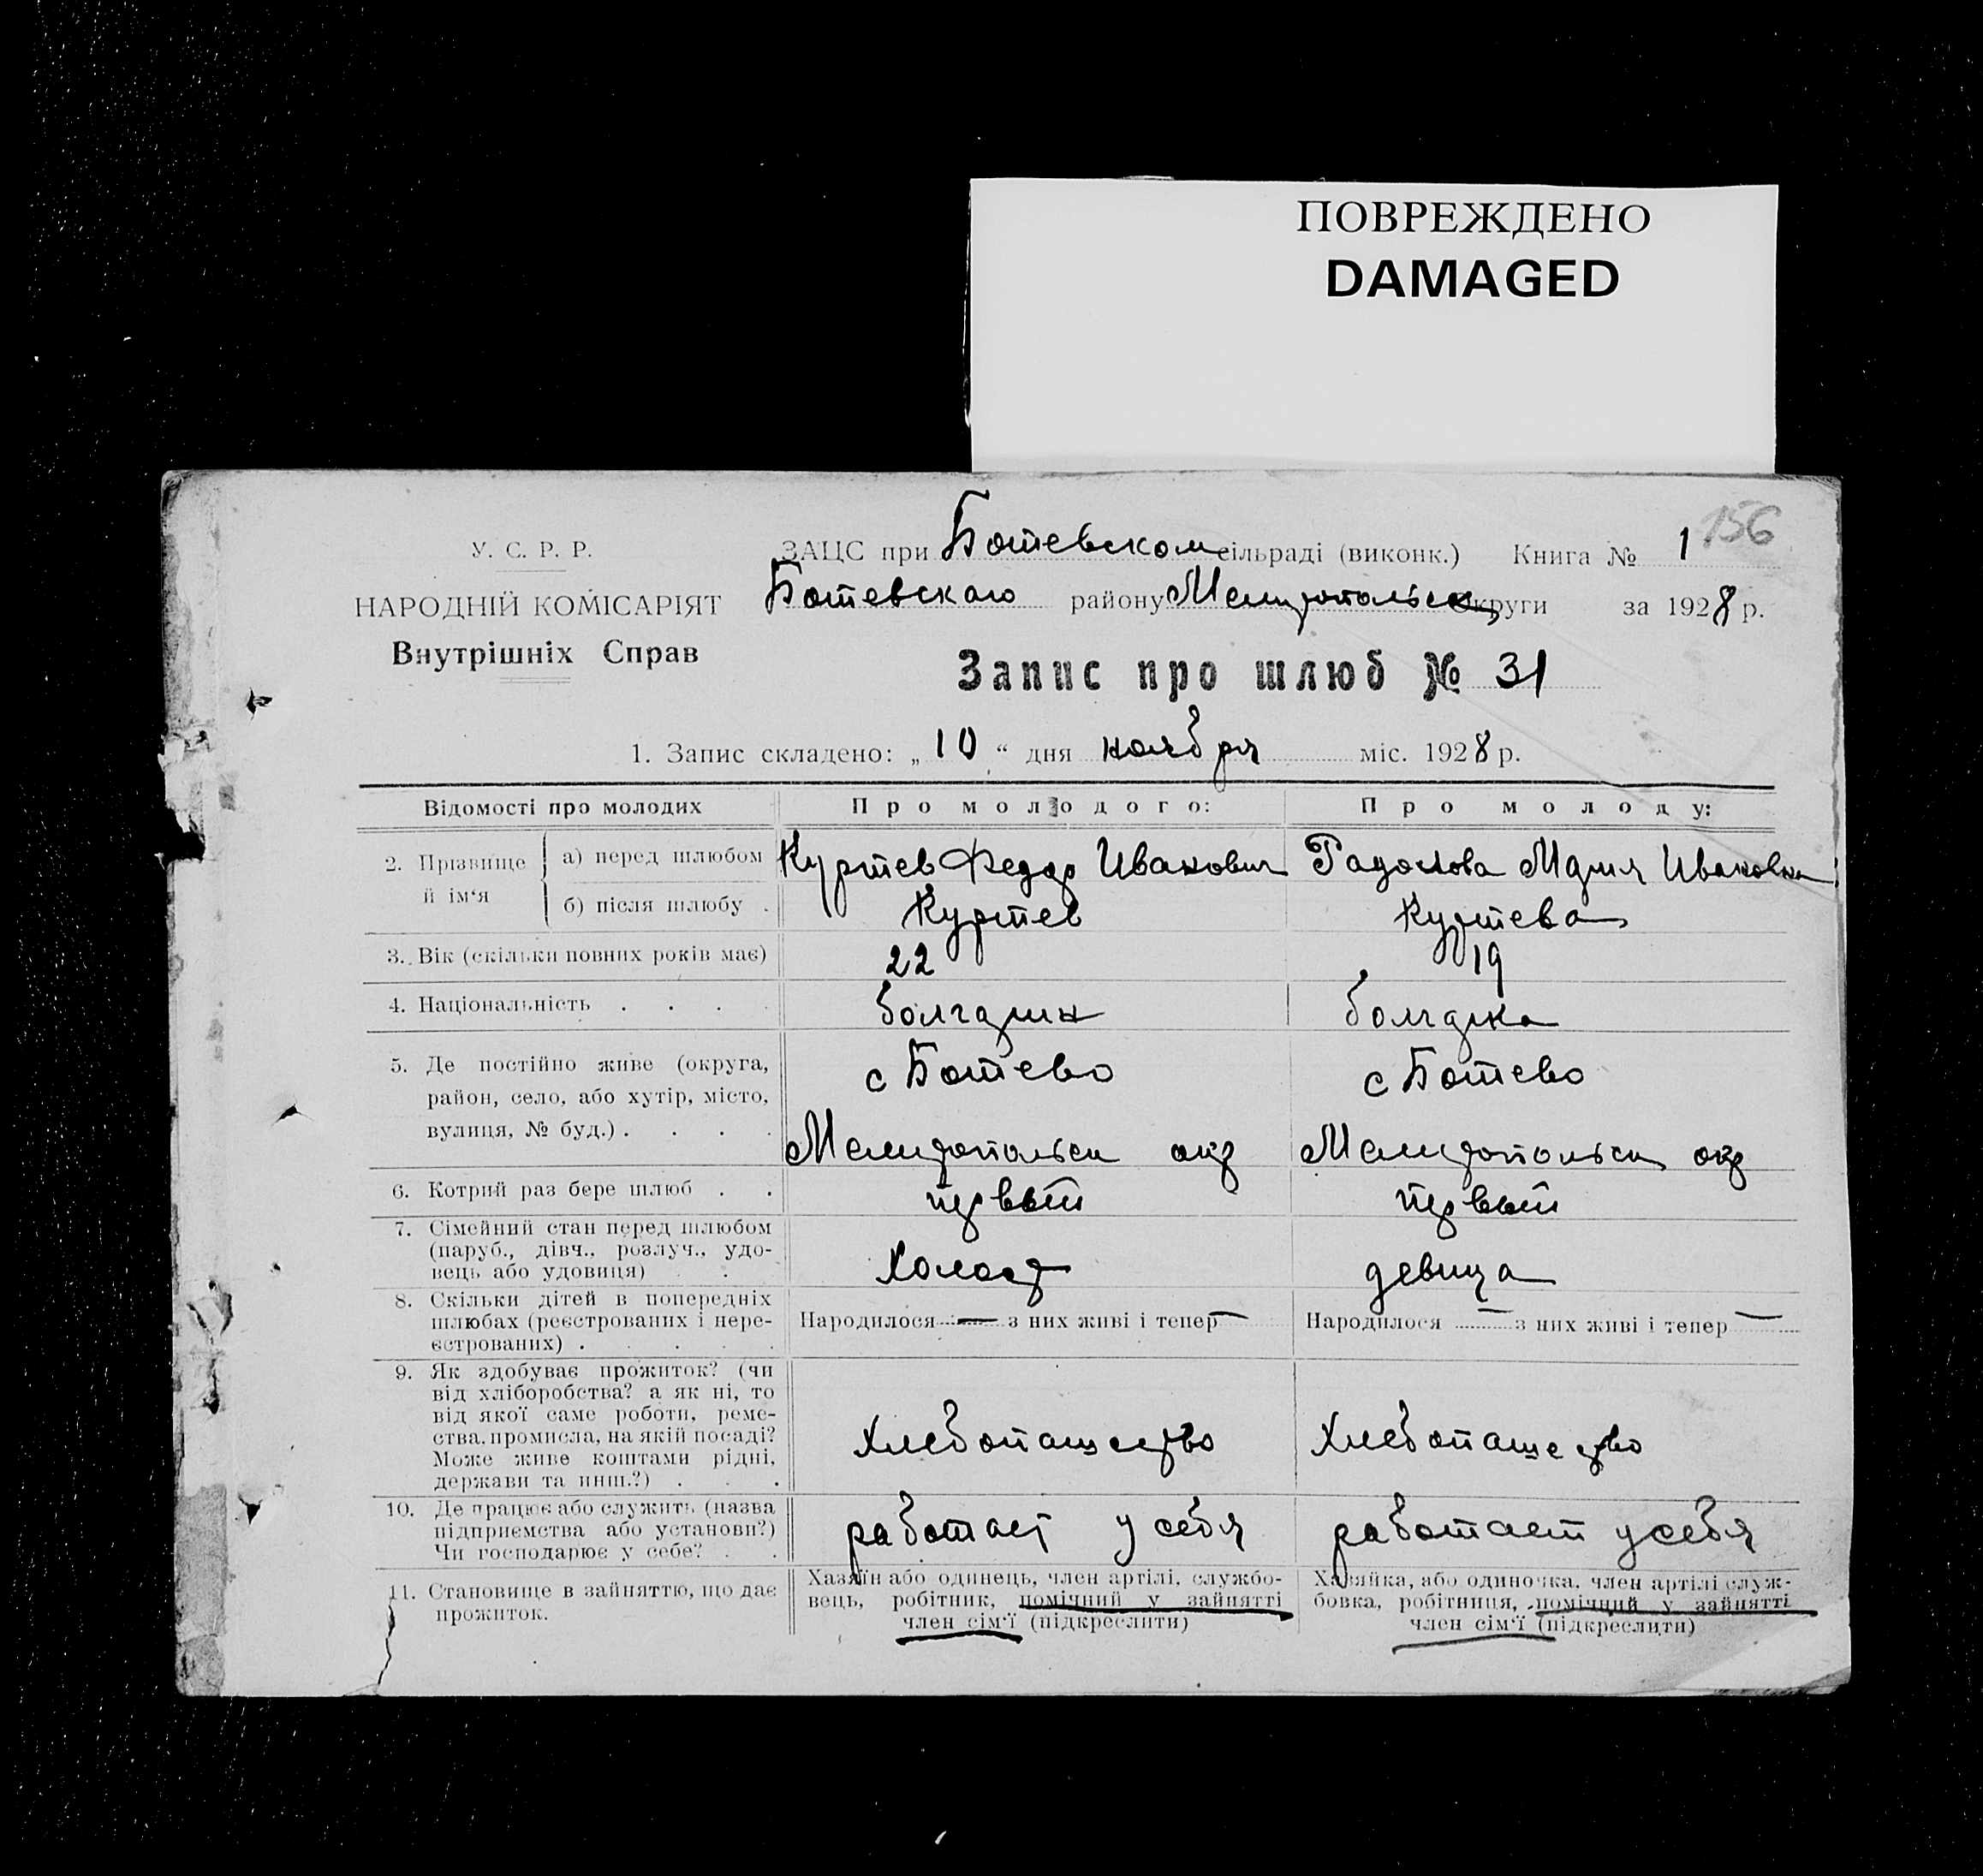 ПОВРЕЖДЕНО
DAMAGED
156
У. С. Р. Р.
НАРОДНІЙ КОМІСАРІЯТ
Внутрішніх Справ
ЗАЦС при Ботевском сільраді (виконк.) Книга № 1
Ботевскаго району Мелитопольск округи за 1928 р.
Запис про шлюб № 31
1. Запис складено: „10“ дня ноября міс. 1928 р.
Відомості про молодих Про молодого: Про молоду:
2. Прізвище й ім‘я
а) перед шлюбом Куртев Федор Иванович Радолова Мария Ивановна
б) після шлюбу . Куртев Куртева
3. Вік (скільки повних років має) 22 19
4. Національність . . . . болгарин болгарка
5. Де постійно живе (округа, с Ботево с Ботево
район, село, або хутір, місто,
вулиця, № буд.) . . . . Мелитопольск окр Мелитопольск окр
6. Котрий раз бере шлюб . . первый первый
7. Сімейний стан перед шлюбом
(паруб., дівч., розлуч., удо-
вець або удовиця) . . Холост девица
8. Скільки дітей в попередніх
шлюбах (реєстрованих і нере- Народилося — з них живі і тепер — Народилося — з них живі і тепер —
єстрованих) . . . . .
9. Як здобуває прожиток? (чи
від хліборобства? а як ні, то
від якої саме роботи, реме-
ства, промисла, на якій посаді? Хлебопашество Хлебопашество
Може живе коштами рідні,
держави та инш.?) . . .
10. Де працює або служить (назва
підприємства або установи?) работает у себя работает у себя
Чи господарює у себе? . .
11. Становище в зайняттю, що дає
прожиток.
Хазяїн або одинець, член артілі, службо-
вець, робітник, помічний у зайнятті
член сім‘ї (підкреслити)
Хазяйка, або одиночка, член артілі служ-
бовка, робітниця, помічний у зайнятті
член сім‘ї (підкреслити)